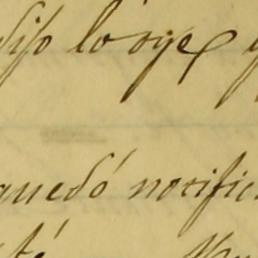 dijo lo oye
quedó notific
té